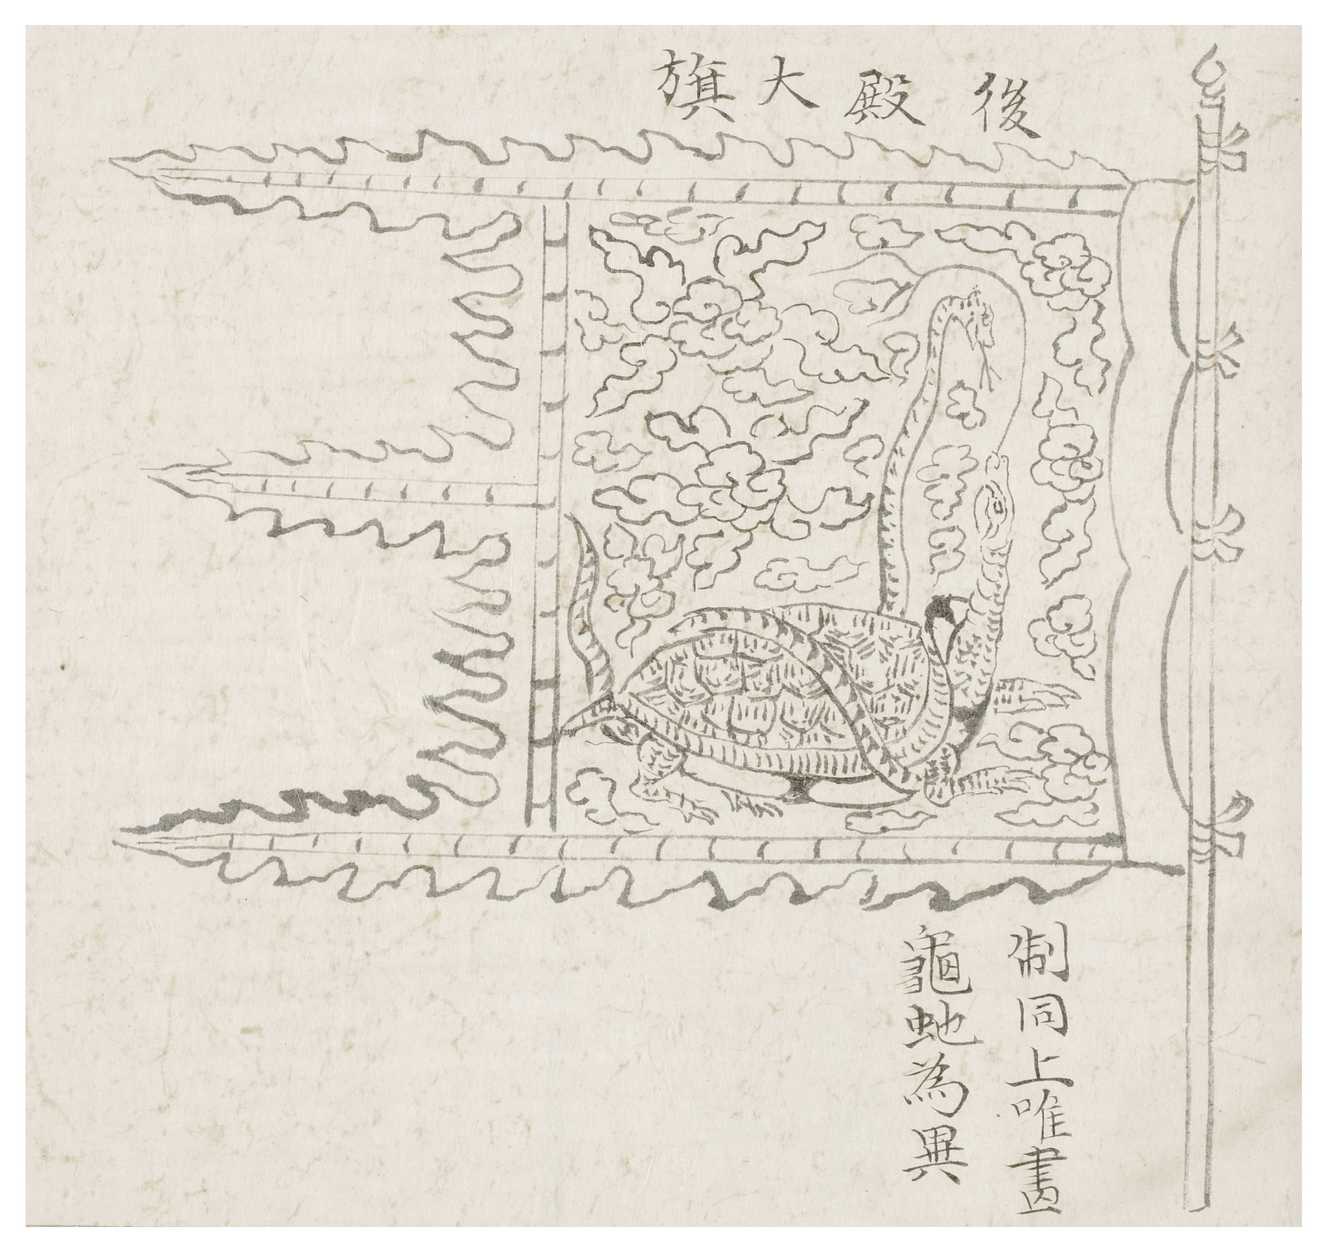 後殿大旗
制同上唯畫
龜虵為異